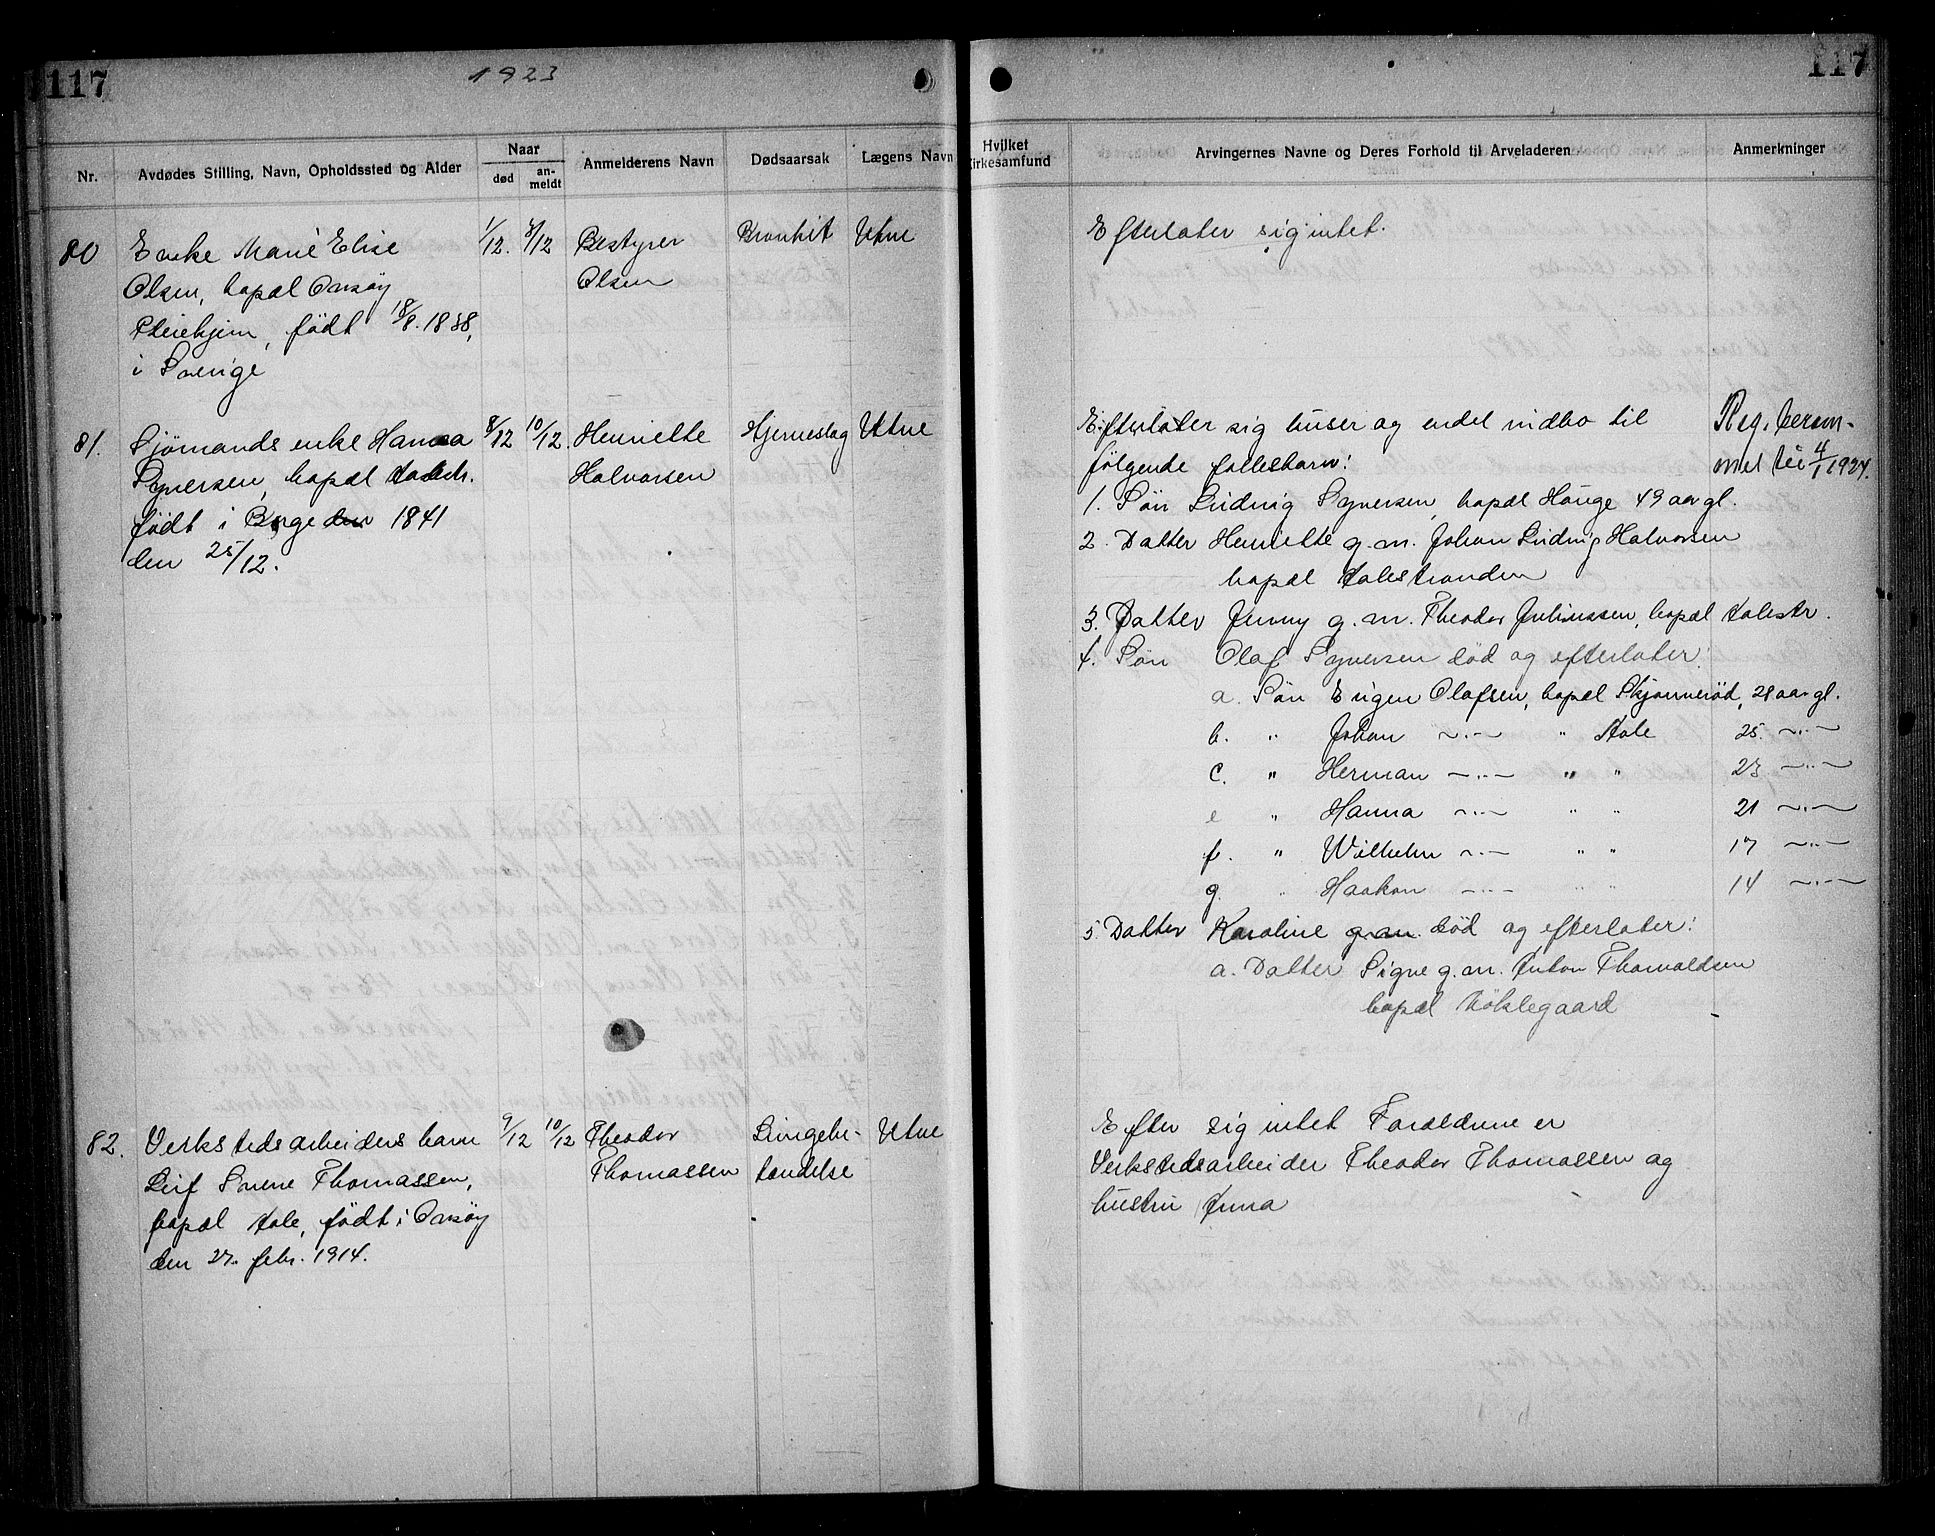 117
1923
117
Nr.
Avdødes Stilling, Navn, Opholdssted og Alder
Naar
død
an-
meldt
Anmelderens Navn
Dødsaarsak
Lægens Navn
Hvilket
Kirkesamfund
Arvingernes Navne og Deres Forhold til Arveladeren
Anmerkninger
80
Enke Marie Elise
Olsen, bopæl Onsøy
Pleiehjem, født 18/8. 1838,
i Sverige
1/12.
Bestyrer
Olsen
Bronkit
Utne
Efterlater sig intet.
81.
Sjømands enke Hanna
Syversen, bopæl
født i Borge den 1841
den 25/12.
8/12
10/12.
Henriette
Halvorsen
Hjerneslag
Utne
Efterlater sig huser og endel indbo til
følgende fællesbarn:
1. Søn Ludvig Syversen, bopæl Hauge 49 aar gl.
2. Datter Henriette g.m. Johan Ludvig Halvorsen
bopæl Alestranden
3. Datter Jenny g.m. Theodor Juliussen, bopæl Alestr.
4. Søn Olaf Syversen død og efterlater:
a. Søn Eugen Olafsen, bopæl Skjønnerød, 28 aar gl.
b. " Johan —"— " Ale 25. —"—
c. " Herman —"— " " 23 —"—
e " Hanna —"— " " 21 —"—
f. " Wilhelm —"— " " 17 —"—
g. " Haakon —"— " " 14 —"—
5. Datter Karoline g.m. død og efterlater:
a. Datter Signe g.m. Anton Thorvaldsen
bopæl Røklegaard
82.
Verkstedsarbeiders barn
Leif Sverre Thomassen,
bopæl Ale, født i Onsøy
den 27. febr. 1914.
9/12
10/12
Theodor
Thomassen
Lungebe-
tændelse
Utne
Efter sig intet Forældrene er
Verkstedsarbeider Theodor Thomassen og
hustru Anna